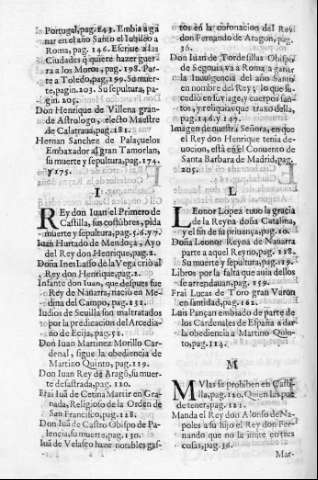 Portugal, pag. 243. Embia a ga
nar en el año Santo el Iubileo a
Roma, pag. 146. Escriue a las
Ciudades q̃ quiere hazer guer
ra a los Moros, pag. 198. Par-
te a Toledo, pag. 199. Su muer
te, pagin. 203. Su sepultura, pa-
gin. 205.
Don Henrique de Villena gran-
de Astrologo, electo Maestre
de Calatraua, pag. 181.
Hernan Sanchez de Palaçuelos
Embaxador al gran Tamorlan,
su muerte y sepultura, pag. 174.
y 175.
I
Rey don Iuan el Primero de
Castilla, sus costũbres, vida
muerte y sepultura, pag. 5. 6. y 7.
Iuan Hurtado de Mendoça, Ayo
del Rey don Henrique, pag. 2.
Doña Ines Lasso de la Vega
Rey don Henrique, pag. 2.
Infante don Iuan, que despues fue
Rey de Nauarra, nacio en Me-
dina del Campo, pag. 151.
Iudios de Seuilla son maltratados
por la predicacion del Arcedia-
no de Ecija, pag. 51.
Don Iuan Martinez Morillo Car-
denal, sigue la obediencia de
Martino Quinto, pag. 119.
Don Iuan Rey de Aragõ, su muer-
te desastrada, pag. 120.
Frai Iuã de Cetina Martir en Gra-
nada, Religioso de la Orden de
San Francisco, pag. 128.
Don Iuã de Castro Obispo de Pa-
lencia, su muerte, pag. 130.
Iuã de Velasco haze notables gas-
tos en la coronacion del Rey
don Fernando de Aragon, pag.
36.
Don Iuan de Tordesillas Obispo
de Segouia, va a Roma a ganar
la Indulgencia del año Santo
en nombre del Rey, lo que su-
cedio en su viage, y cuerpos san-
tos y reliquias que traxo della,
pag. 146. y 147.
Imagen de nuestra Señora, en quo
el Rey don Henrique tenia de-
uocion, està en el Conuento de
Santa Barbara de Madrid, pag.
205.
L
Leonor Lopez tuuo la gracia
de la Reyna doña Catalina,
y el fin de su priuança, pag. 10.
Doña Leonor Reyna de Nauarra
parte a aquel Reyno, pag. 118.
Su muerte y sepultura, pag. 19.
Libros por la falta que auia dellos
se arrendauan, pag. 159.
Frai Lucas de Toro gran Varon
en santidad, pag. 162.
Luis Pançan embiado de parte de
los Cardenales de España a dar
la obediencia a Martino Quin-
to, pag. 114.
M
Mulas se prohiben en Casti-
lla, pag. 120. Quien las pue
de tener, pag. 121.
Manda el Rey don Alonso de Na-
poles a su hijo el Rey don Fer-
nando que no la imite en tres
cosas, pag. 36.
Mar-